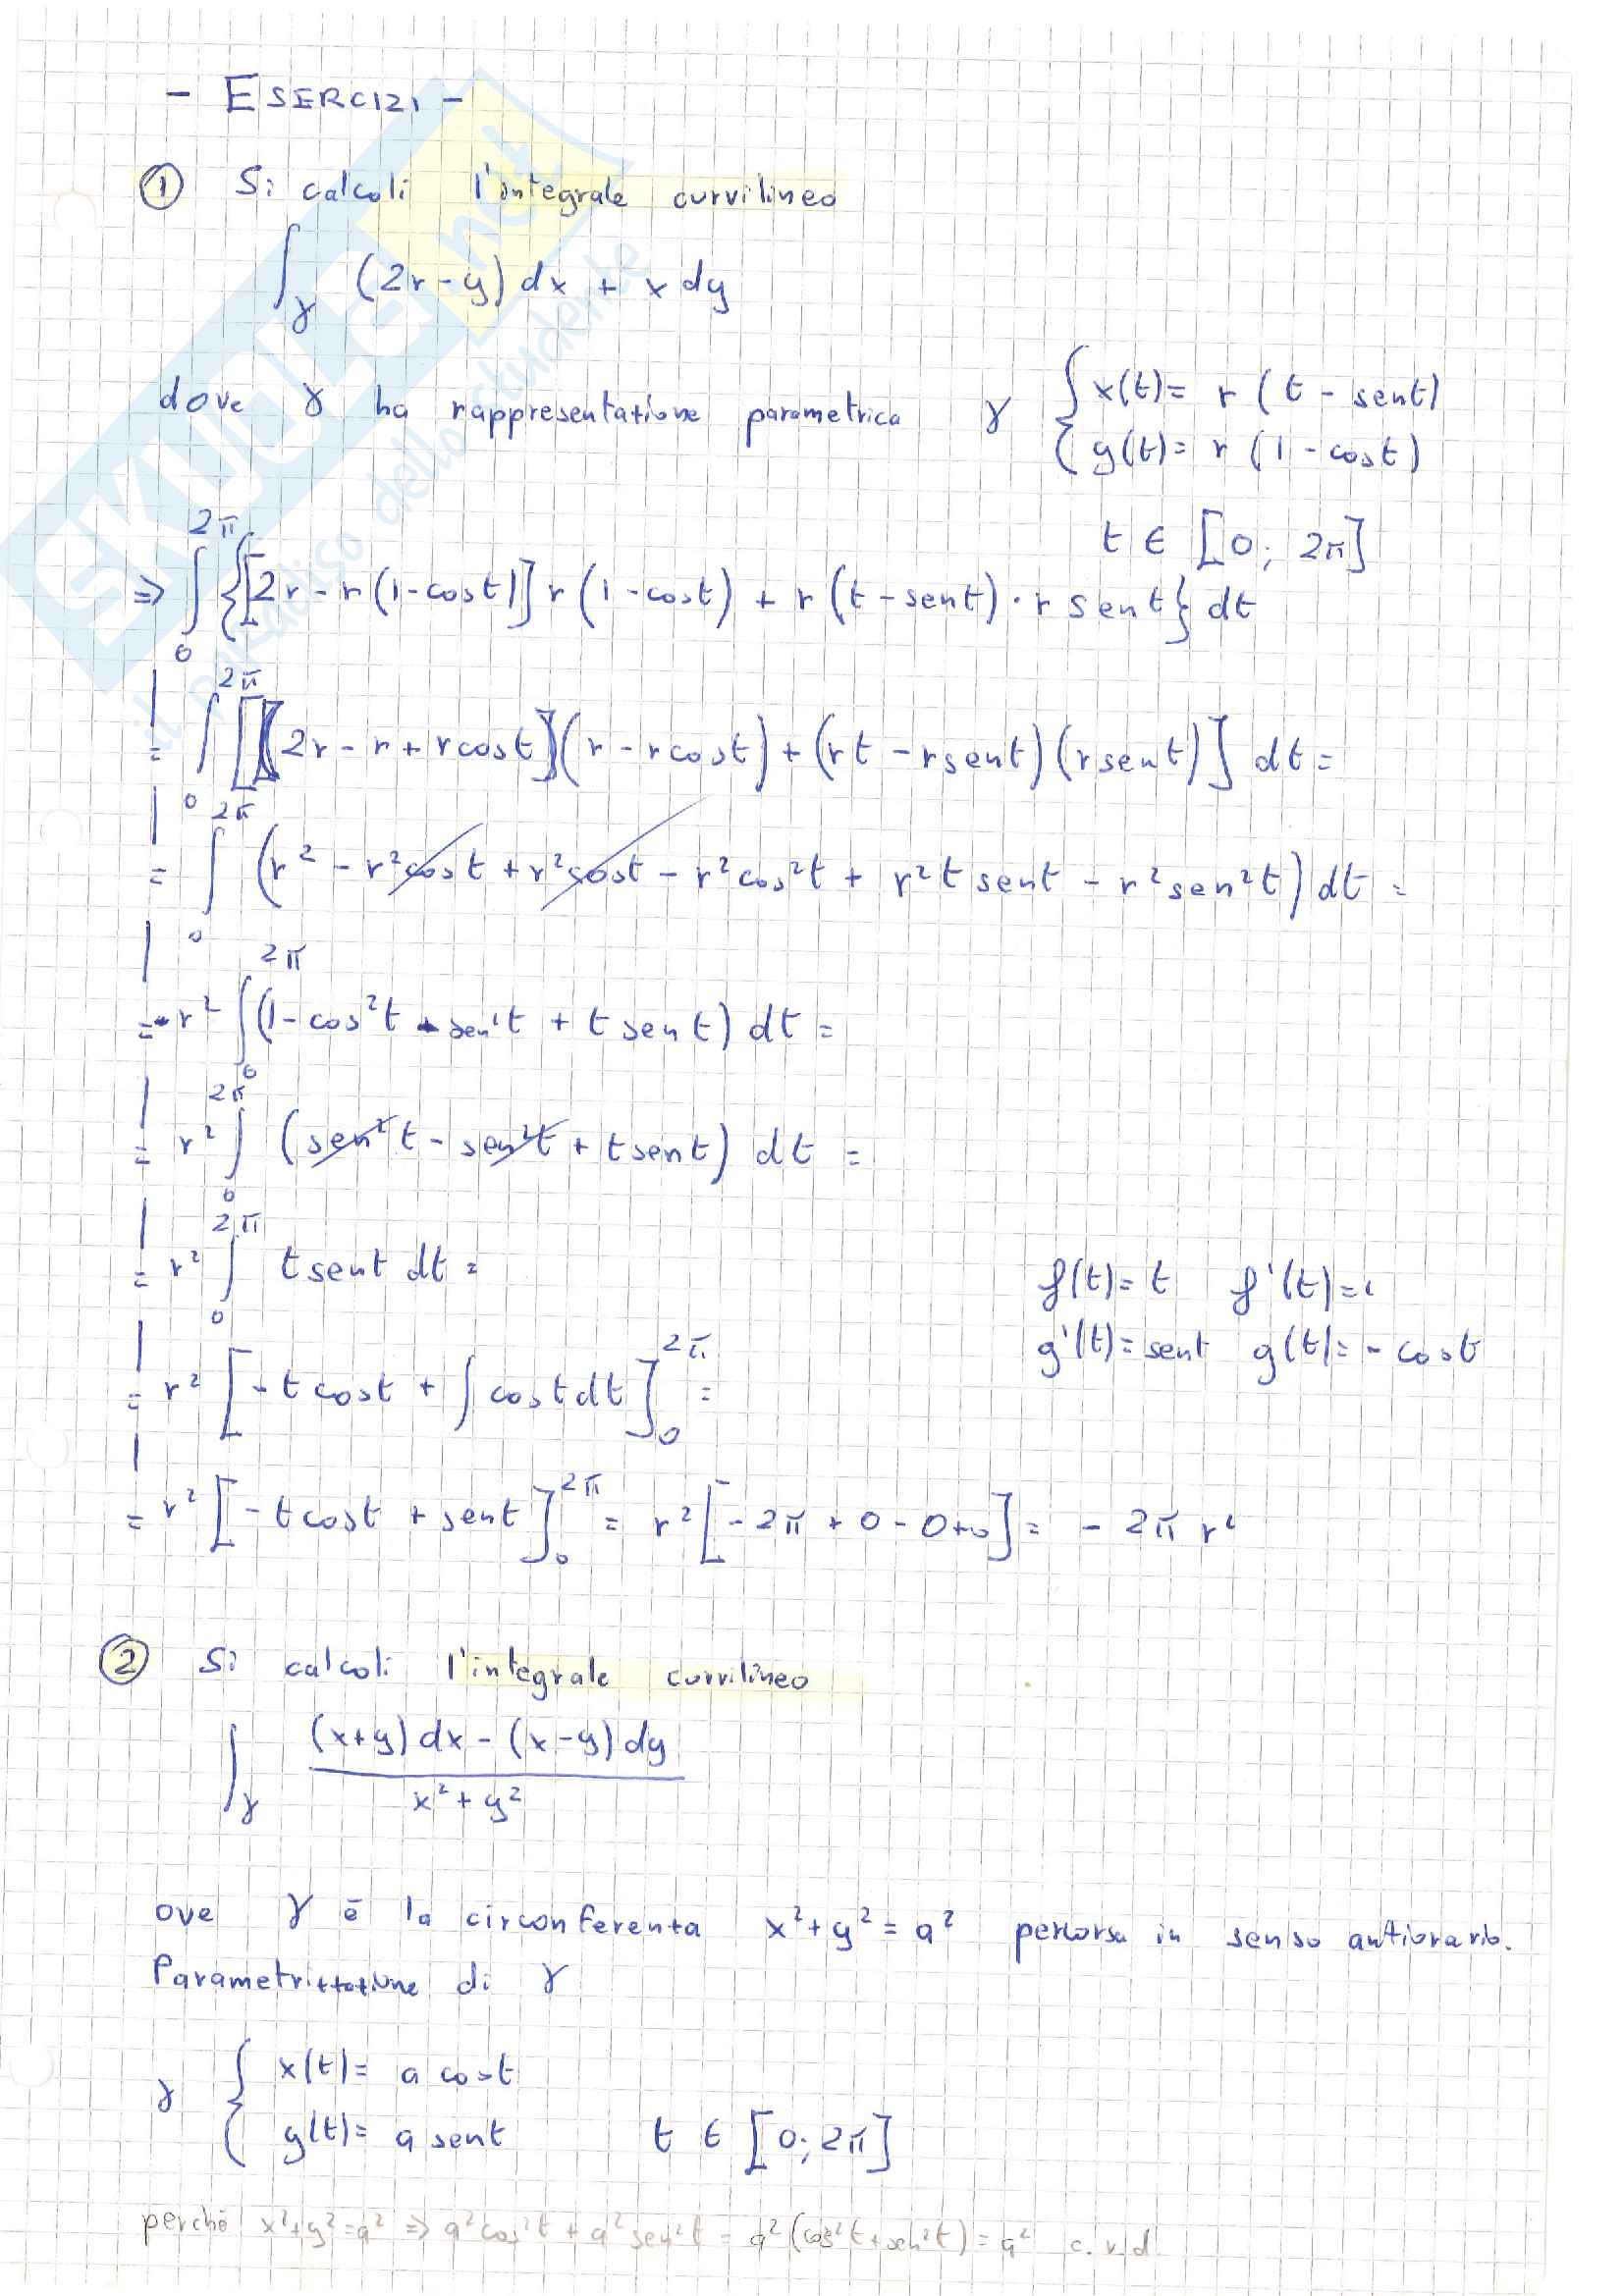 - ESERCIZI -
① Si calcoli l'integrale curvilineo
∫γ (2r-y) dx + x dy
dove γ ha rappresentazione parametrica γ { x(t)= r (t - sent)
y(t)= r (1 - cost)
t ∈ [0; 2π]
=> ∫₀^2π {[2r - r(1-cost)] r (1-cost) + r (t-sent)· r sent} dt
= ∫₀^2π [[2r - r + r cost](r - r cost) + (rt - rsent)(rsent)] dt =
= ∫₀^2π (r² - r²cost + r²cost - r²cos²t + r²t sent - r²sen²t) dt =
= r² ∫₀^2π (1-cos²t - sen²t + t sent) dt =
= r² ∫₀^2π (sen²t - sen²t + t sent) dt =
= r² ∫₀^2π t sent dt =
f(t)= t f'(t)=1
g'(t)= sent g(t)= - cost
= r² [- t cost + ∫ cost dt]₀^2π =
= r² [- t cost + sent]₀^2π = r² [-2π + 0 - 0+0] = - 2π r²
② Si calcoli l'integrale curvilineo
∫γ (x+y) dx - (x-y) dy
x² + y²
ove γ è la circonferenza x²+y² = a² percorsa in senso antiorario.
Parametrizzazione di γ
γ { x(t)= a cost
y(t)= a sent t ∈ [0; 2π]
perchè x²+y²=a² => a²cos²t + a²sen²t = a²(cos²t+sen²t)= a² c.v.d.
SKUOLA.net
il paradiso dello studente